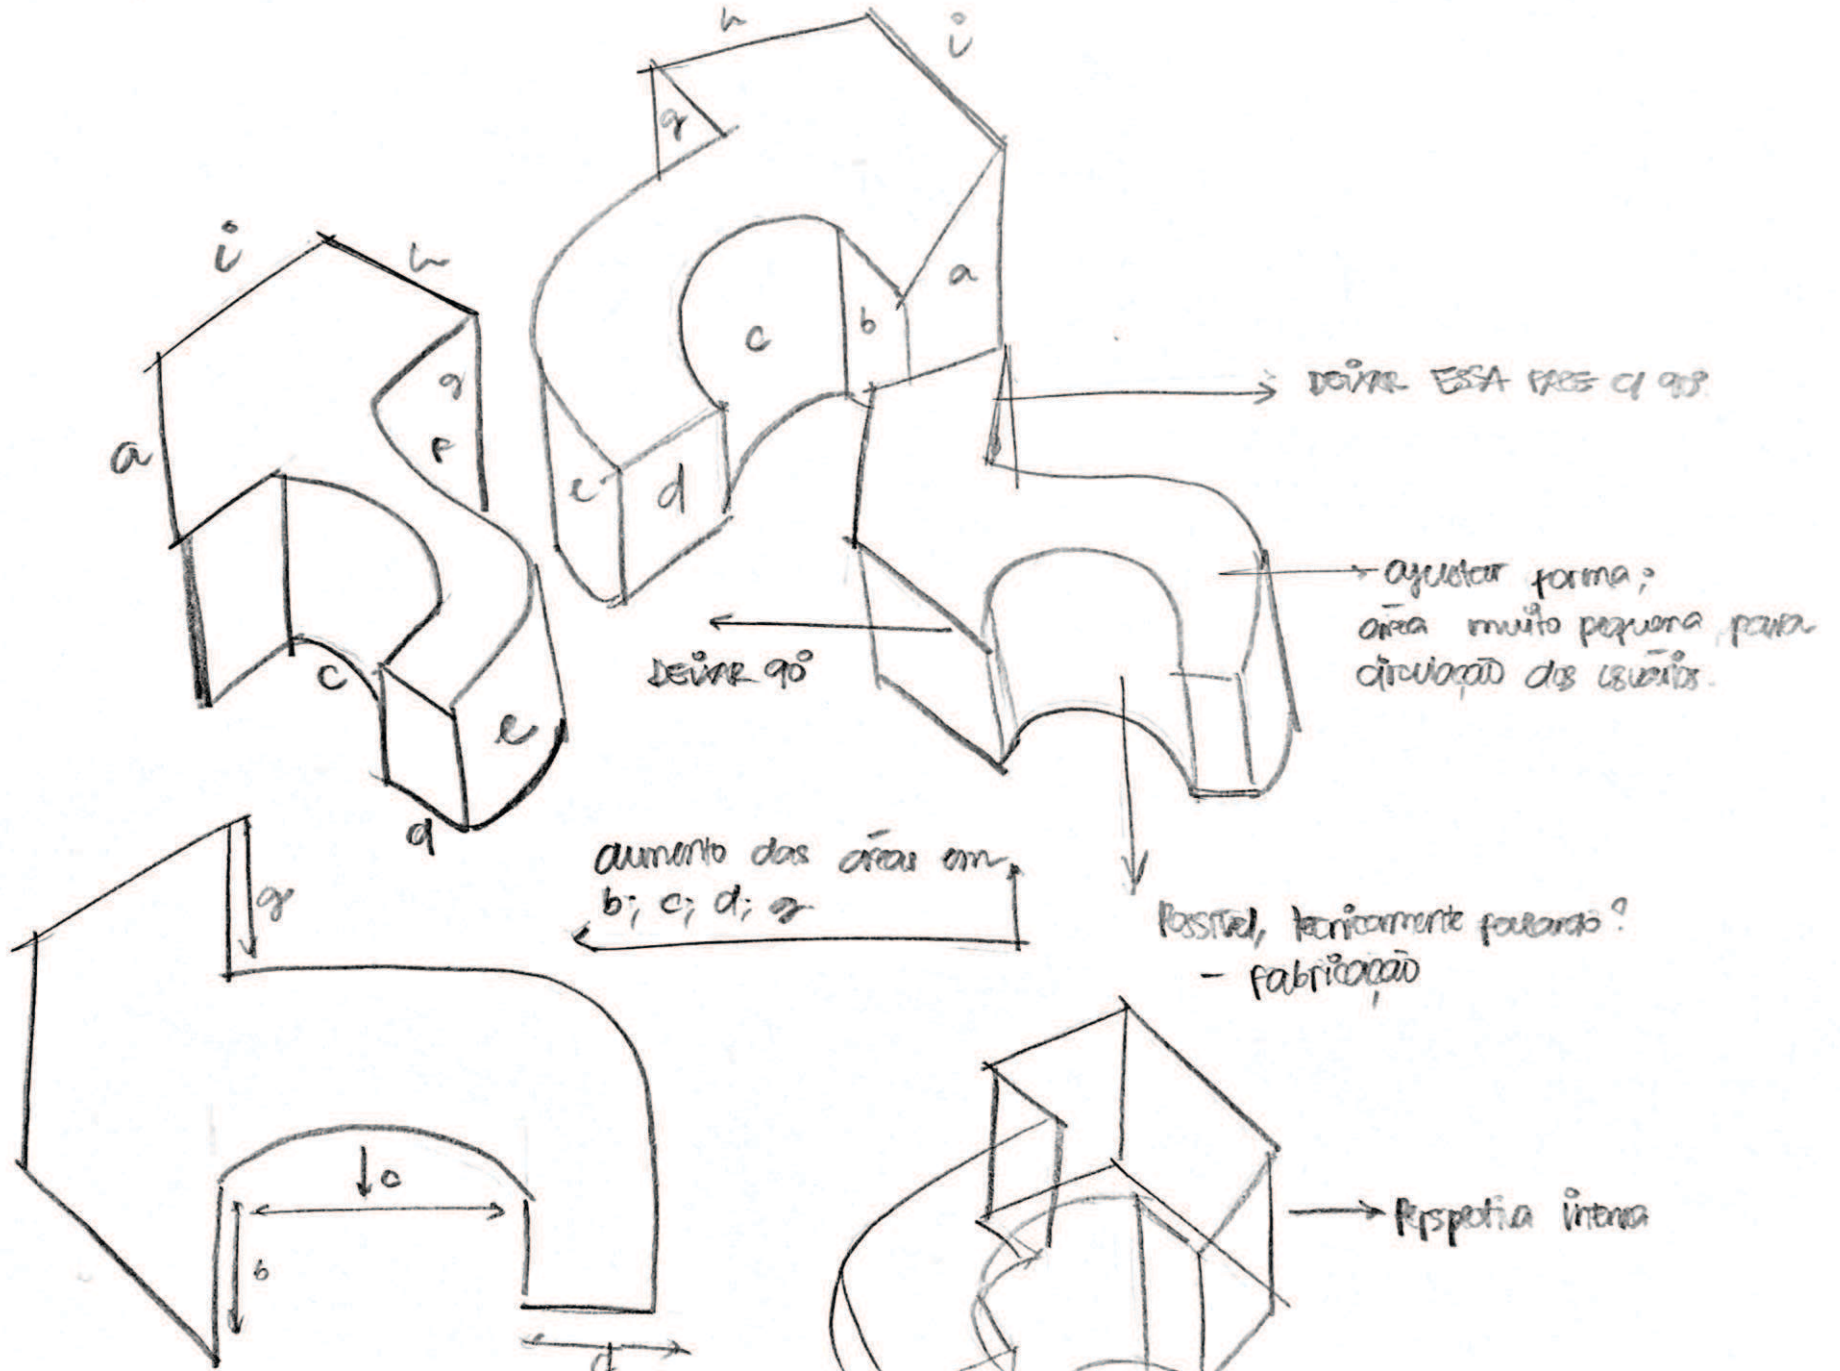 h
i
g
a
c
b
e
d
i
h
a
g
f
c
e
d
DEIXAR ESSA FACE C/ 90º
ajustar forma;
área muito pequena para
circulação dos usuários.
DEIXAR 90º
aumento das áreas em
b; c; d; g
Possível, tecnicamente falando?
- fabricação
g
c
b
d
Perspectiva interna